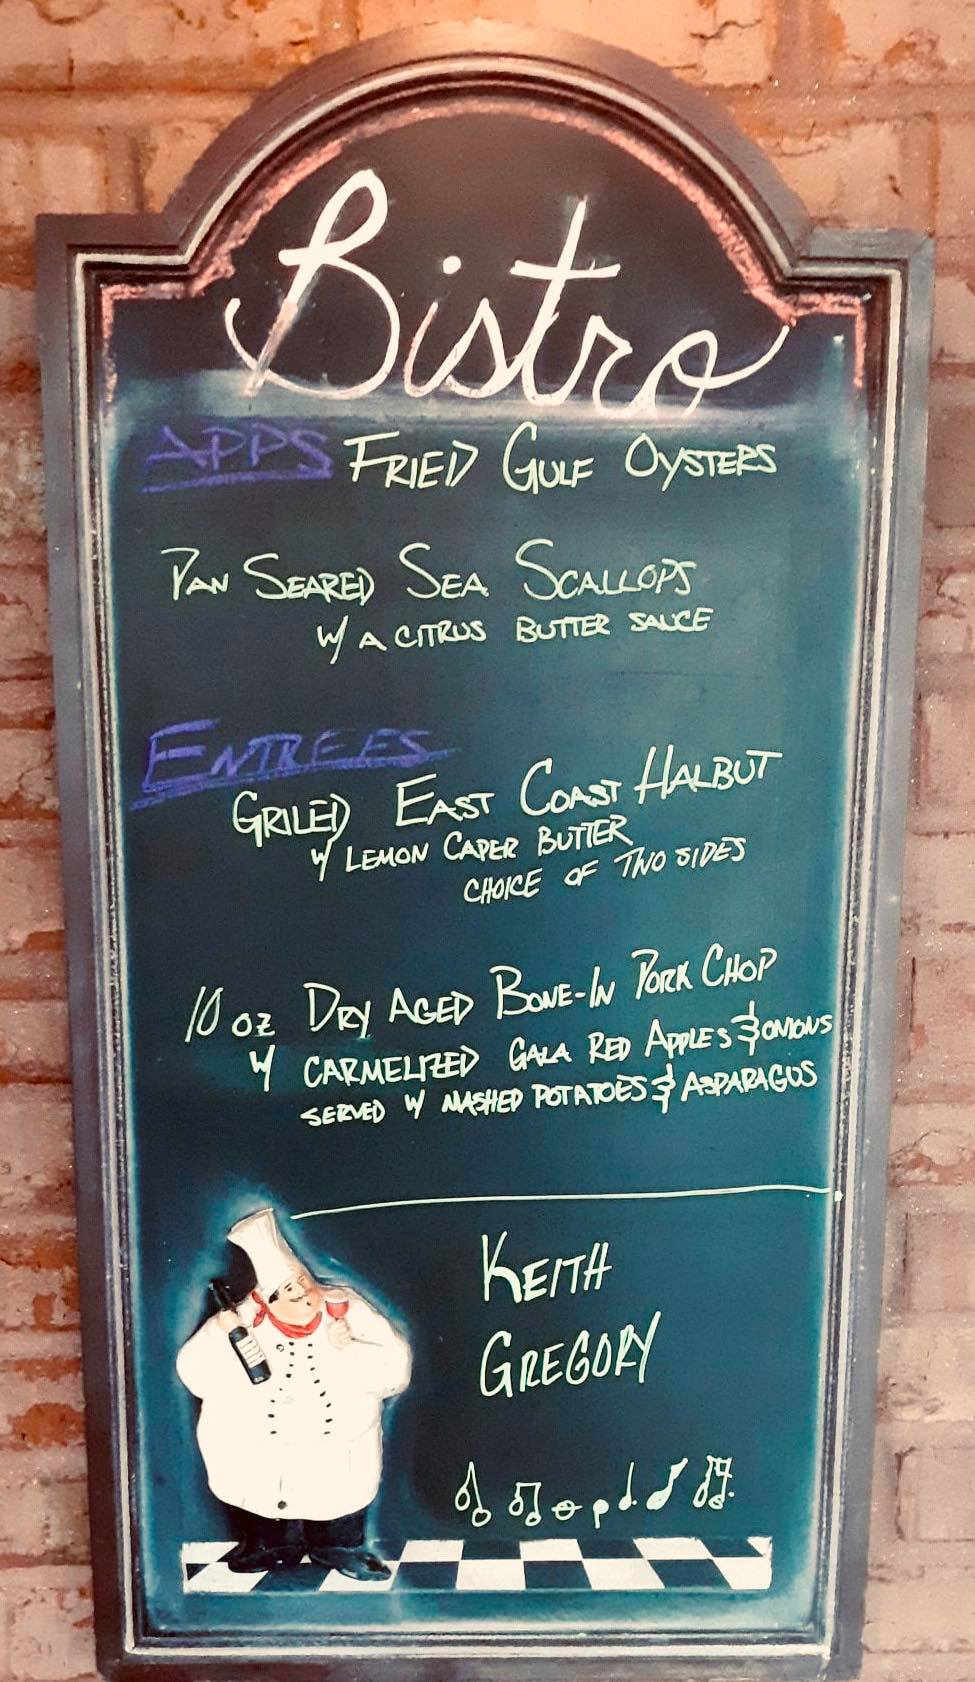 Bistro
APPS FRIED GULF OYSTERS
PAN SEARED SEA SCALLOPS
W/ A CITRUS BUTTER SAUCE
ENTREES
GRILED EAST COAST HALBUT
W/ LEMON CAPER BUTTER
CHOICE OF TWO SIDES
10 OZ DRY AGED BONE-IN PORK CHOP
W/ CARMELIZED GALA RED APPLES & ONIONS
SERVED W/ MASHED POTATOES & ASPARAGUS
KEITH
GREGORY